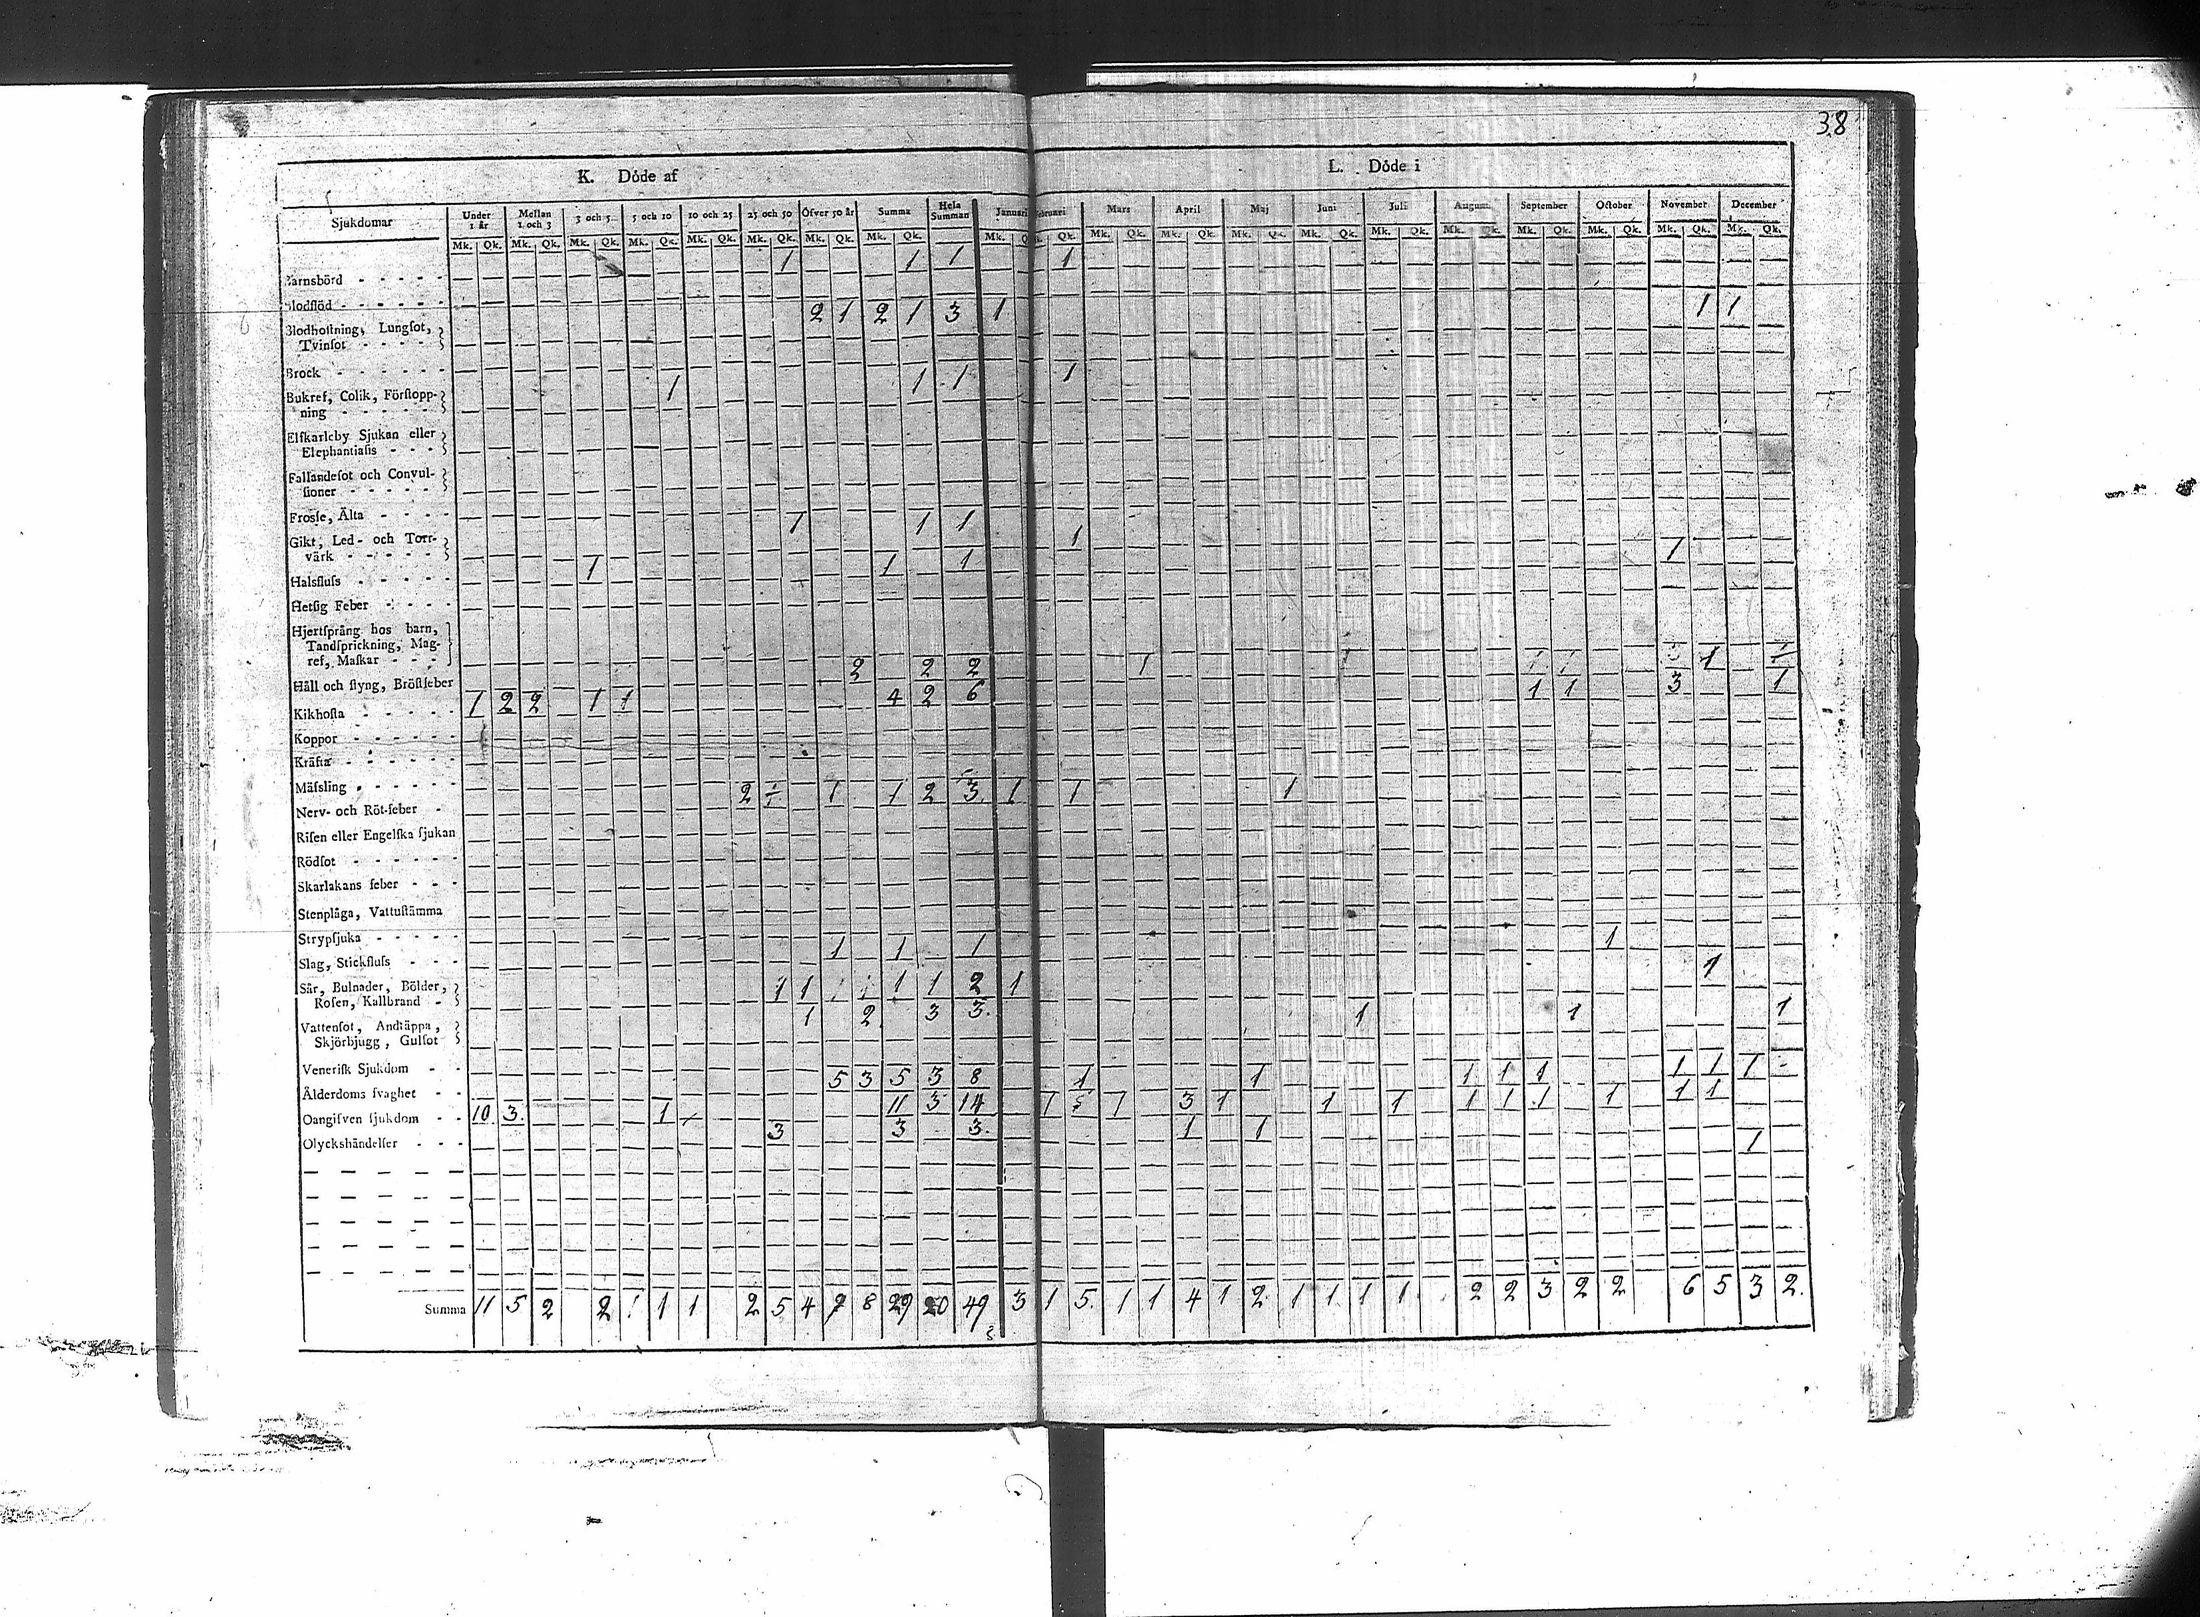 38
K. Döde af
L. Döde i
Sjukdomar Under 1 år Mellan 1 och 3 3 och 5 5 och 10 10 och 25 25 och 50 Öfver 50 år Summa Hela Summan Januari Februari Mars April Maj Juni Juli August. September October November December
Mk. Qk. Mk. Qk. Mk. Qk. Mk. Qk. Mk. Qk. Mk. Qk. Mk. Qk. Mk. Qk. Mk. Qk. Mk. Qk. Mk. Qk. Mk. Qk. Mk. Qk. Mk. Qk. Mk. Qk. Mk. Qk. Mk. Qk. Mk. Qk. Mk. Qk.
Barnsbörd 1 1 1 1
Blodflöd
Blodhostning, Lungsot, 2 1 2 1 3 1 1 1
Tvinsot
Brock
Bukref, Colik, Förstopp- 1 1 1 1
ning
Elfkarleby Sjukan eller
Elephantiasis
Fallandesot och Convul-
sioner
Frossa, Älta
Gikt, Led- och Torr- 1 1 1 1
värk
Halsfluss 1 1 1 1
Hetsig Feber
Hjertsprång hos barn,
Tandsprickning, Mag-
ref, Maskar
Håll och styng, Bröstfeber 2 2 2 1 1
Kikhosta 1 2 2 1 1 4 2 6 1 1 3 1
Koppor
Kräfta
Mässling
Nerv- och Röt-feber 2 1 1 2 3 1 1 1
Risen eller Engelska sjukan
Rödsot
Skarlakans feber
Stenplåga, Vattustämma
Strypsjuka
Slag, Stickfluss 1 1 1 1
Sår, Bulnader, Bölder, 1 1 1 1 2 1 1
Rosen, Kallbrand
Vattensot, Andtäppa, 1 2 3 3 1 1 1
Skjörbjugg, Gulsot
Venerisk Sjukdom
Ålderdoms svaghet 5 3 5 3 8 1 1 1 1 1 1 1 1
Oangifven sjukdom 10 3 1 11 3 14 1 1 3 1 1 1 1 1 1 1 1 1
Olyckshändelser 3 3 3 1 1 1
Summa 11 5 2 2 1 1 1 2 5 4 7 8 29 20 49 3 1 5 1 1 4 1 2 1 1 1 1 2 2 3 2 2 6 5 3 2